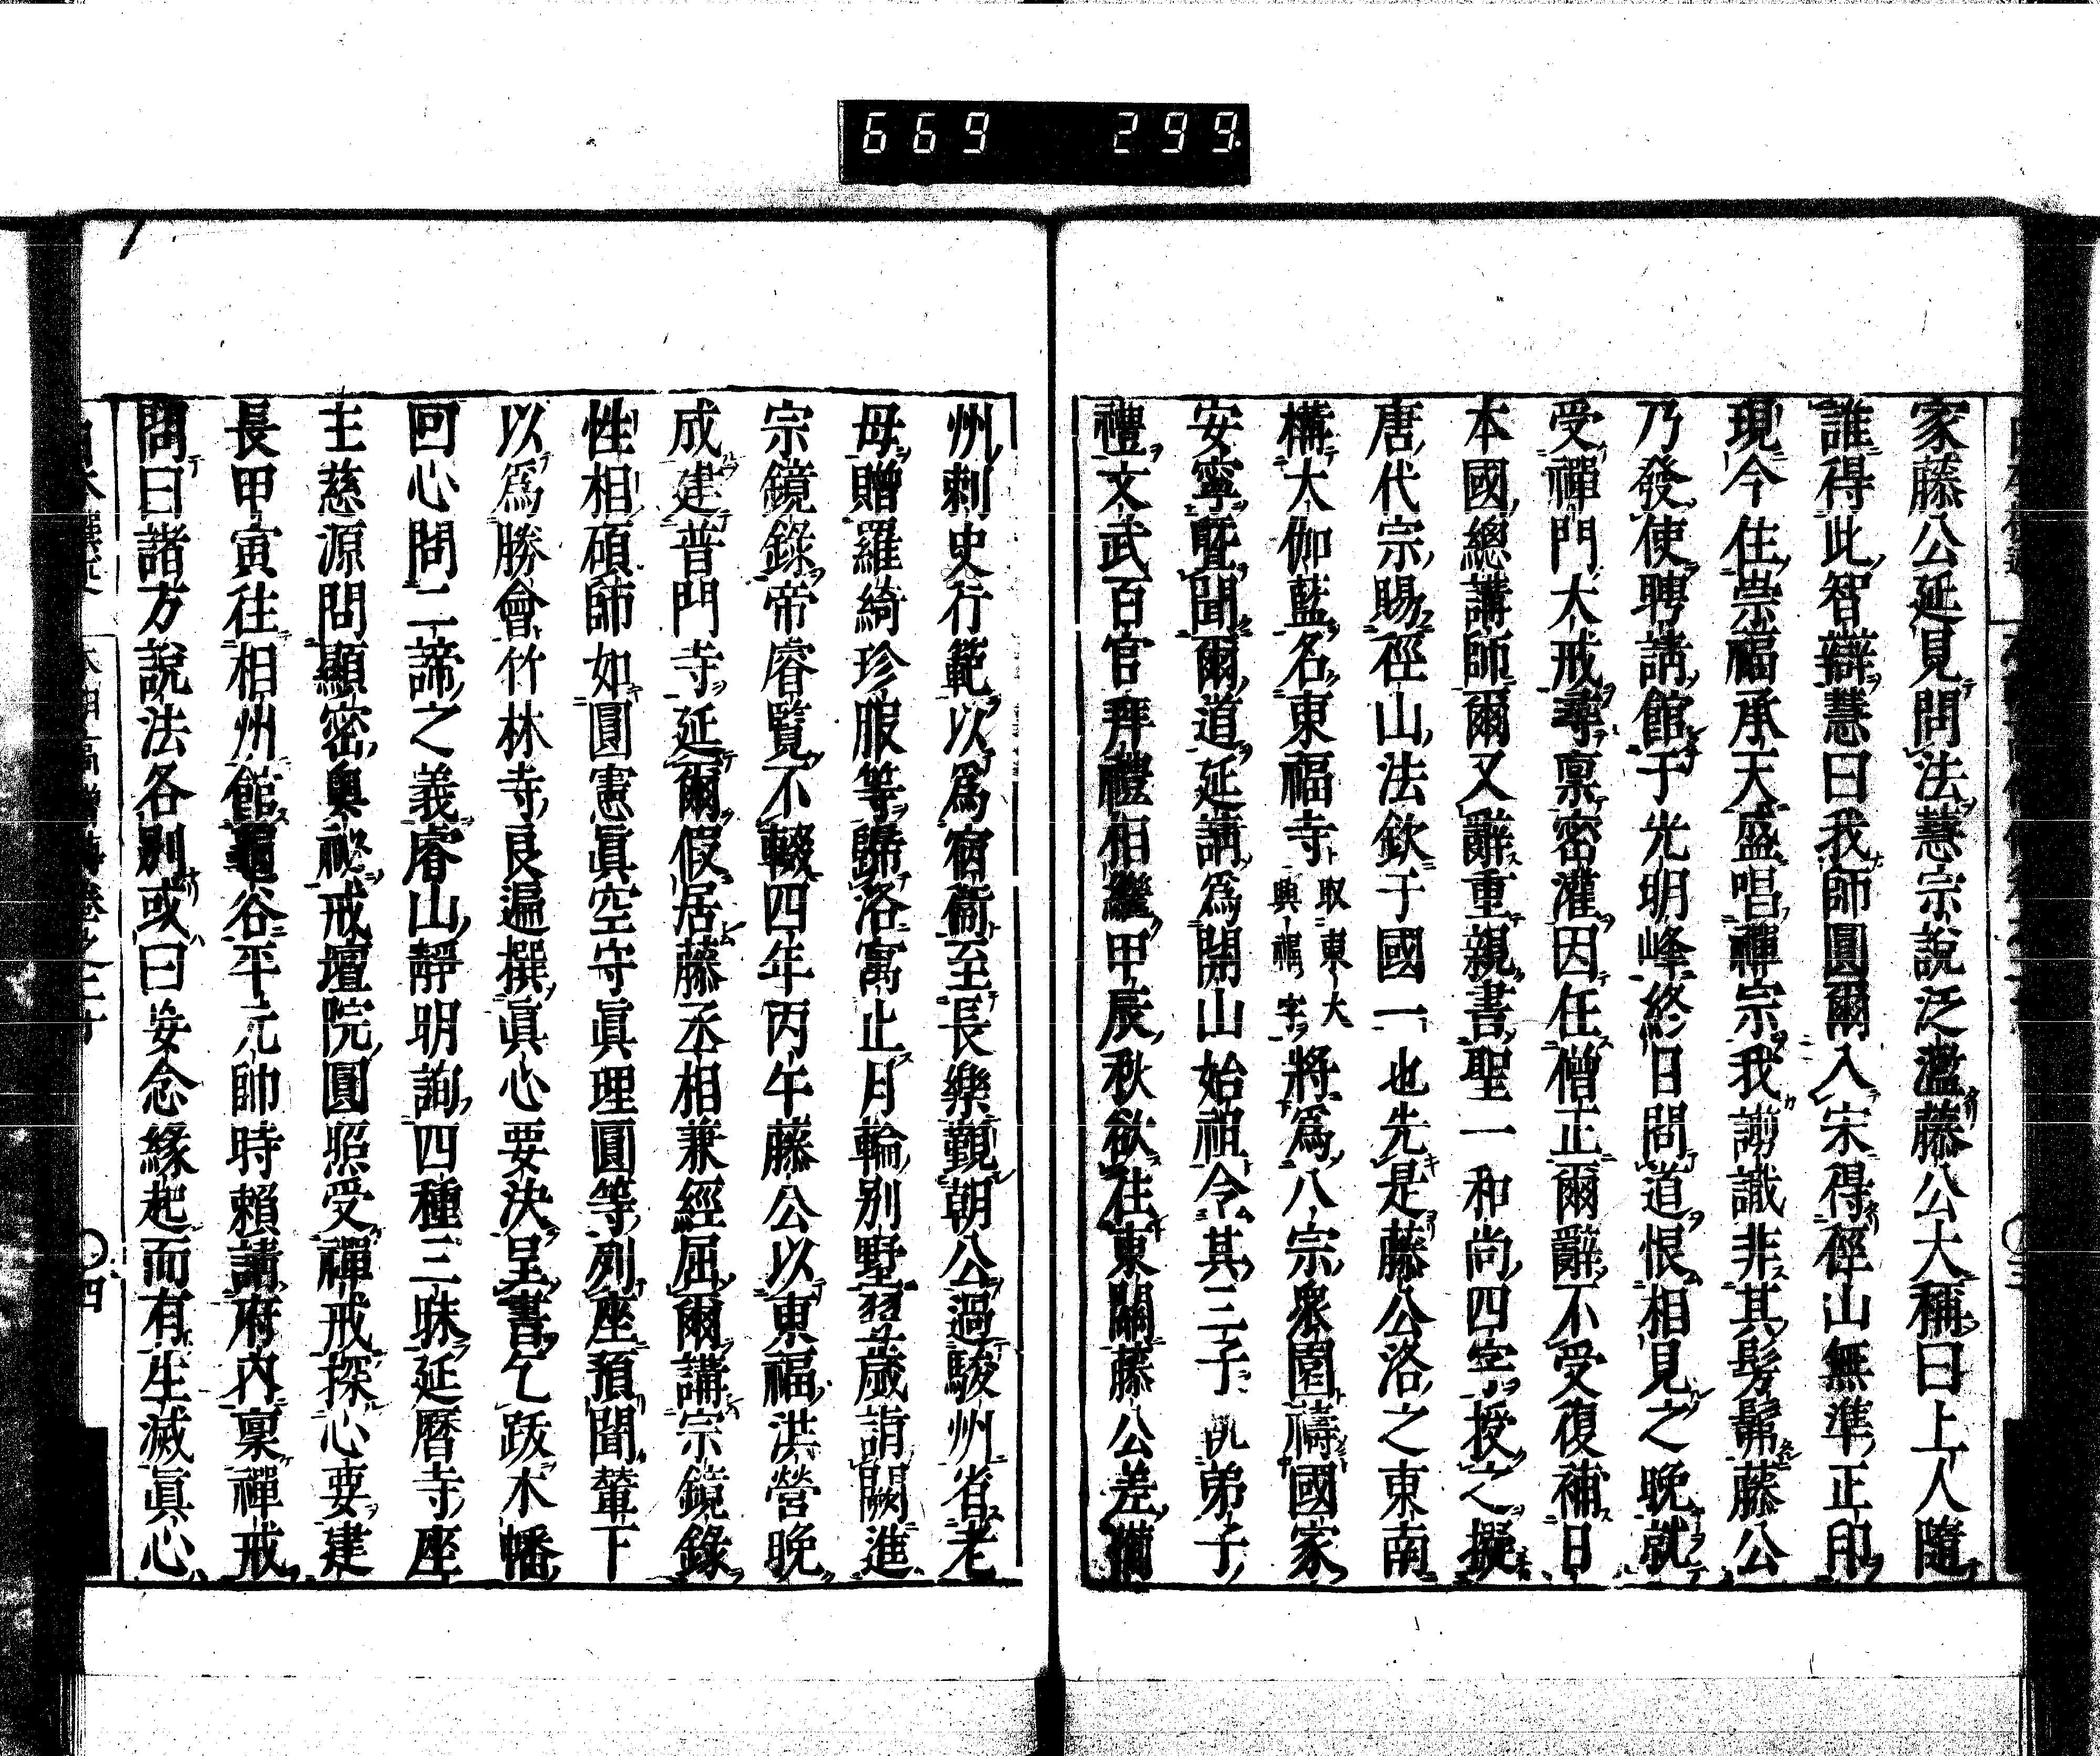 669 299.
家藤公延見問法慧宗說泛濫藤公大稱曰上人隨
誰得此智辯慧曰我師圓爾入宋得徑山無準正印
現今住崇福承天盛唱禪宗我謭識非其髣髴藤公
乃發使聘請館于光明峰終日問道恨相見之晚就
受禪門大戒尋稟密灌因任僧正爾辭不受復補日
本國總講師爾又辭重親書聖一和尚四字授之擬
唐代宗賜徑山法欽于國一也先是藤公洛之東南
構大伽藍名東福寺取東大興福字將為八宗眾園禱國家
安寧暨聞爾道延請為開山始祖令其三子執弟子
禮文武百官拜禮相繼甲辰秋欲往東關藤公差攝
州刺史行範以為宿衛至長樂覲朝公過駿州省老
母贈羅綺珍服等歸洛寓止月輪別墅翌歲詣闕進
宗鏡錄帝睿覽不輟四年丙午藤公以東福洪營晚
成建普門寺延爾假居藤丞相兼經屈爾講宗鏡錄
性相碩師如圓憲真空守真理圓等列座預聞輦下
以為勝會竹林寺良遍撰真心要決呈書乞跋木幡
回心問二諦之義睿山靜明詢四種三昧延曆寺座
主慈源問顯密奧祕戒壇院圓照受禪戒探心要建
長甲寅往相州館龜谷平元帥時賴請府內稟禪戒
問曰諸方說法各別或曰妄念緣起而有生滅真心
四